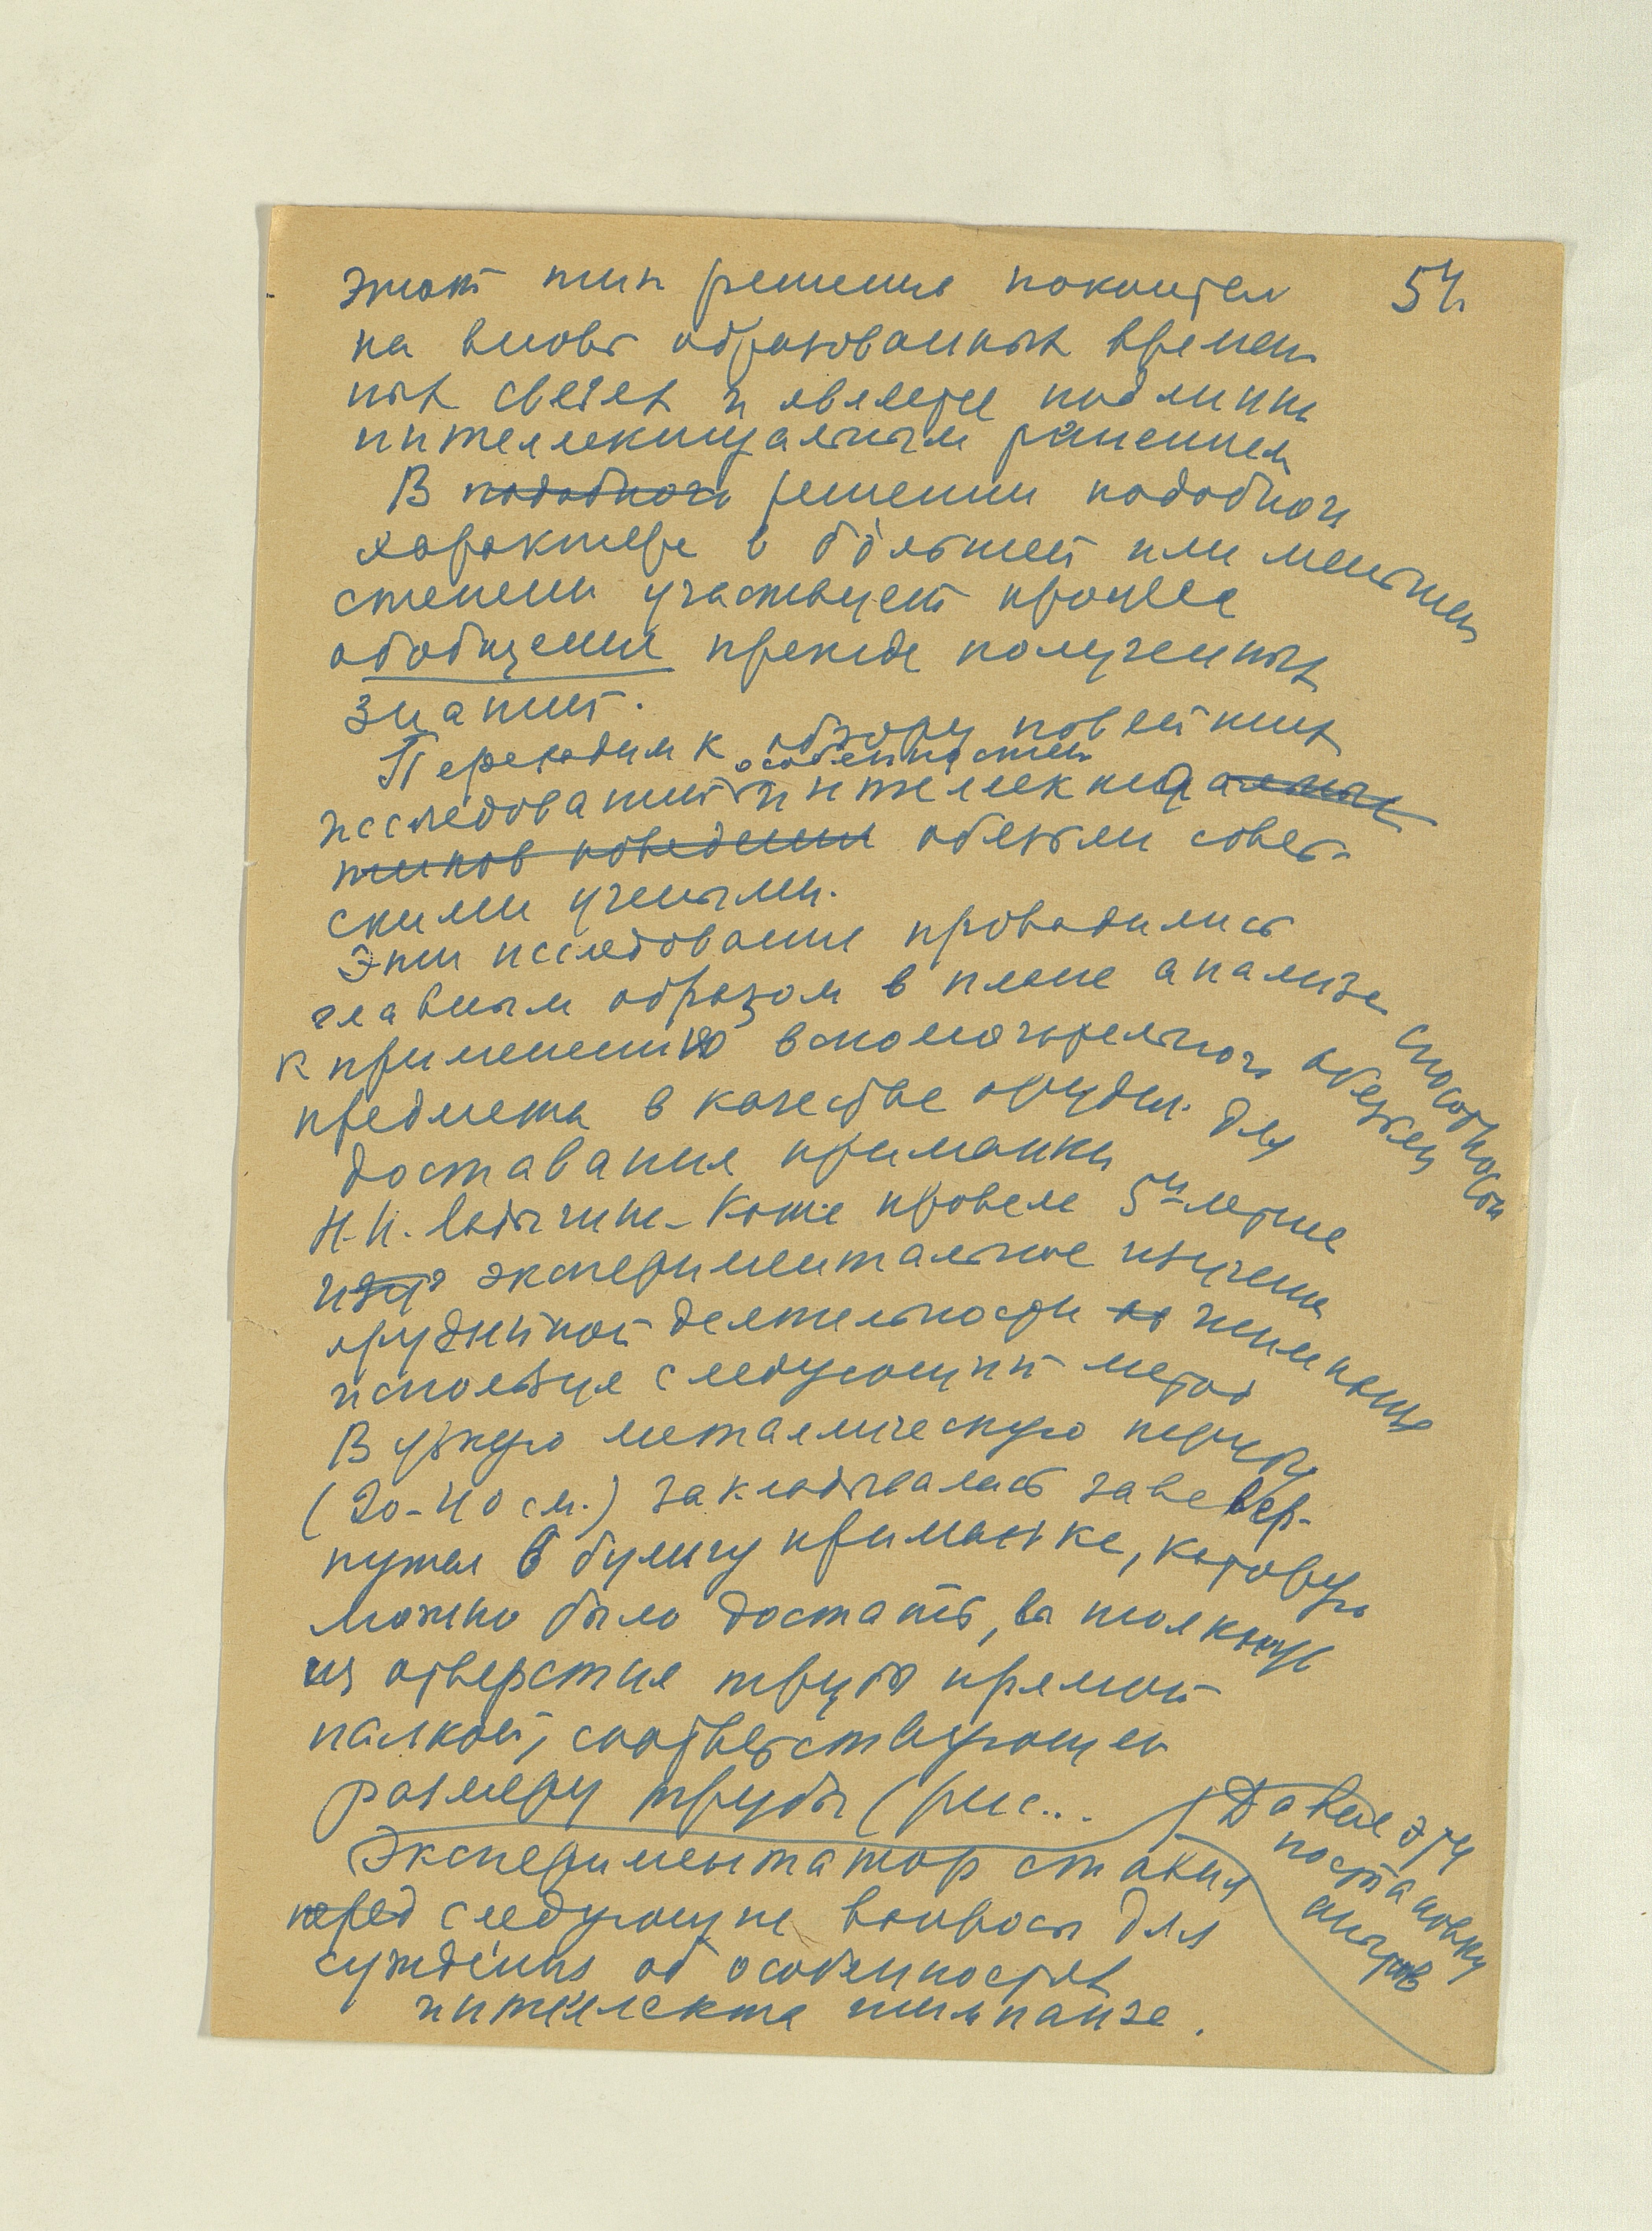 54
этот тип решения покоится
на вновь образованных времен
ных связях и является подлинно
интеллектуальным решением
В подобного решении подобного
характера в большей или меньшей
степени участвует процесс
обобщения прежде полученных
знаний.
Переходим к обзору новейших
особенностей
исследований интеллекта альных
типов поведения обезьян совет-
скими учеными.
Эти исследования проводились
главным образом в плане анализа способности
к применению вспомогательного обезьян
предмета в качестве орудия для
доставания приманки
Н.Н. Ладыгина-Котс провела 5и летнее
изуч экспериментальное изучение
орудийной деятельности шимпанзе
используя следующий метод
В узкую металлическую трубу
(20-40 см.) закладывалась завевер-
нутая в бумагу приманка, которую
можно было достать, вытолкнув
из отверстия трубы прямой
палкой, соответствующей
размеру трубы (рис...
Давая эту
постановку
опытов
Экспериментатор ставил
перед следующие вопросы для
суждения об особенностях
интеллекта шимпанзе.